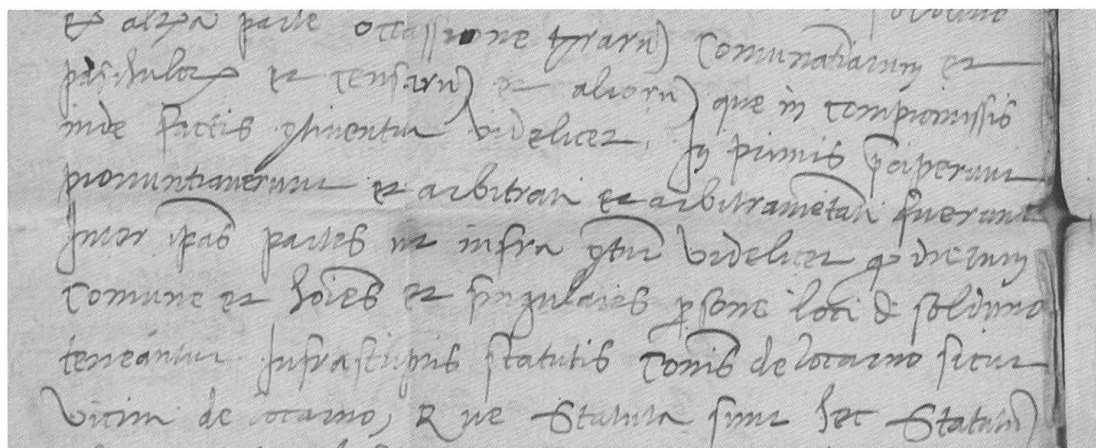 ex altera parte occassione terraru) Comunantiarum et
paschulor et tensaru) et alioru) que in compromissis
inde factis gtinentur videlicet. In primis pciperunt
pronuntiaverunt et arbitrati et arbitrametati fuerunt
Inter ipas partes ut infra gtur videlicet q dictum
Comune et hoies et singulares psone loci de solduno
teneantur Infrascriptis statutis Comis de locarno sicut
vicini de locarno, Que Statuta sunt hec Statutu)